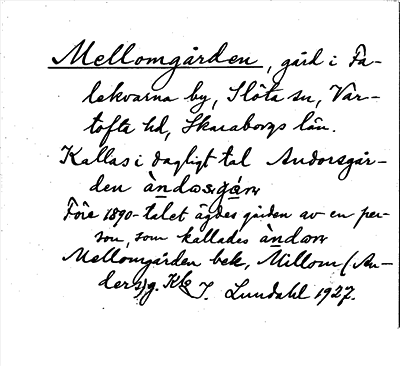 Mellomgården, gård i Fa-
lekvarna by, Slöta sn, Var-
tofta hd, Skaraborgs län.
Kallas i dagligt tal Andorsgår-
den àndosgáṇ
Före 1890-talet ägdes gården av en per-
son, som kallades àndoṇ
Mellomgården bek, Millom (An-
ders)g. Kbg J. Lundahl 1927.